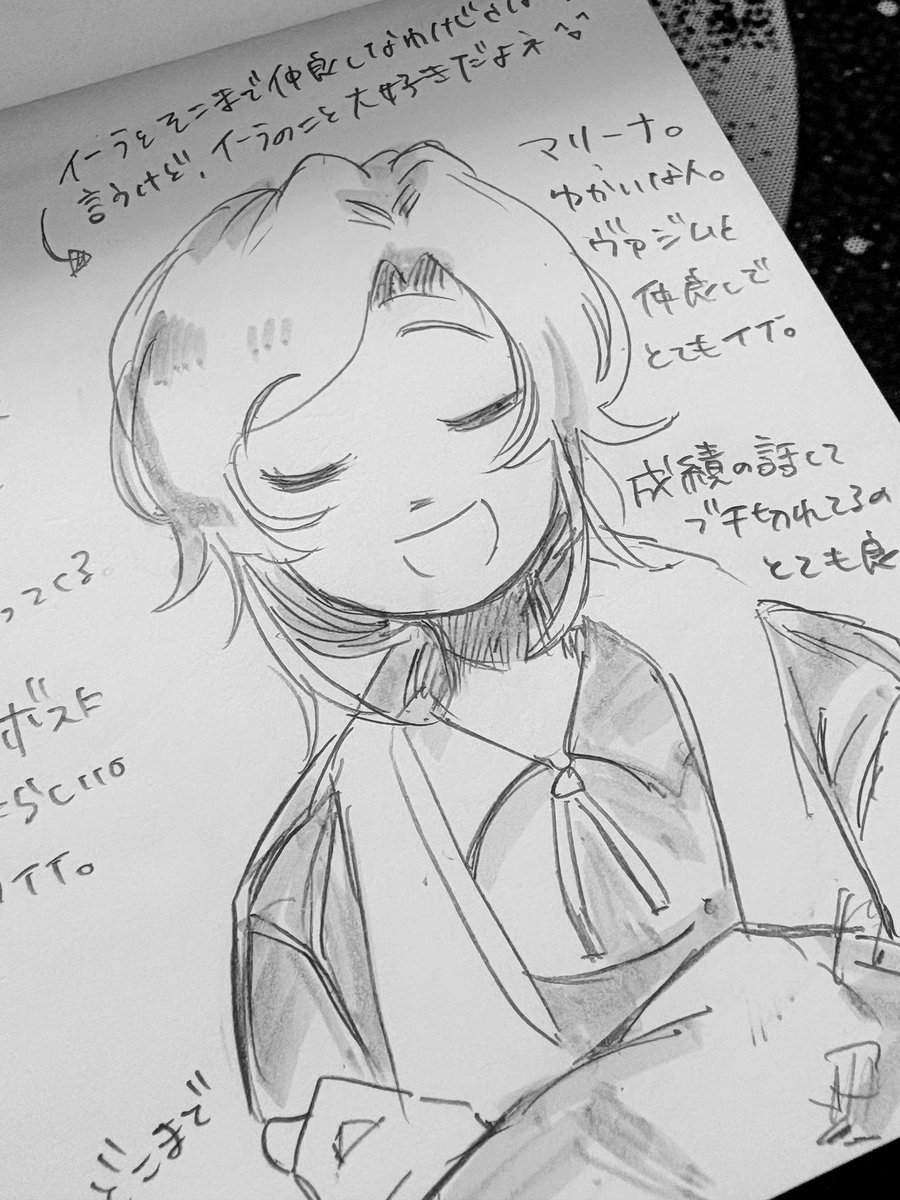 イーラとそこまで仲良しなわけじゃ
言うけど、イーラのこと大好きだよえ^^
マリーナ。
ゆかいな人。
ヴァジムと
仲良しで
とてもイイ。
成績の話して
ブチ切れてるの
とても良
ってくる
らしい
イイ。
どこまで